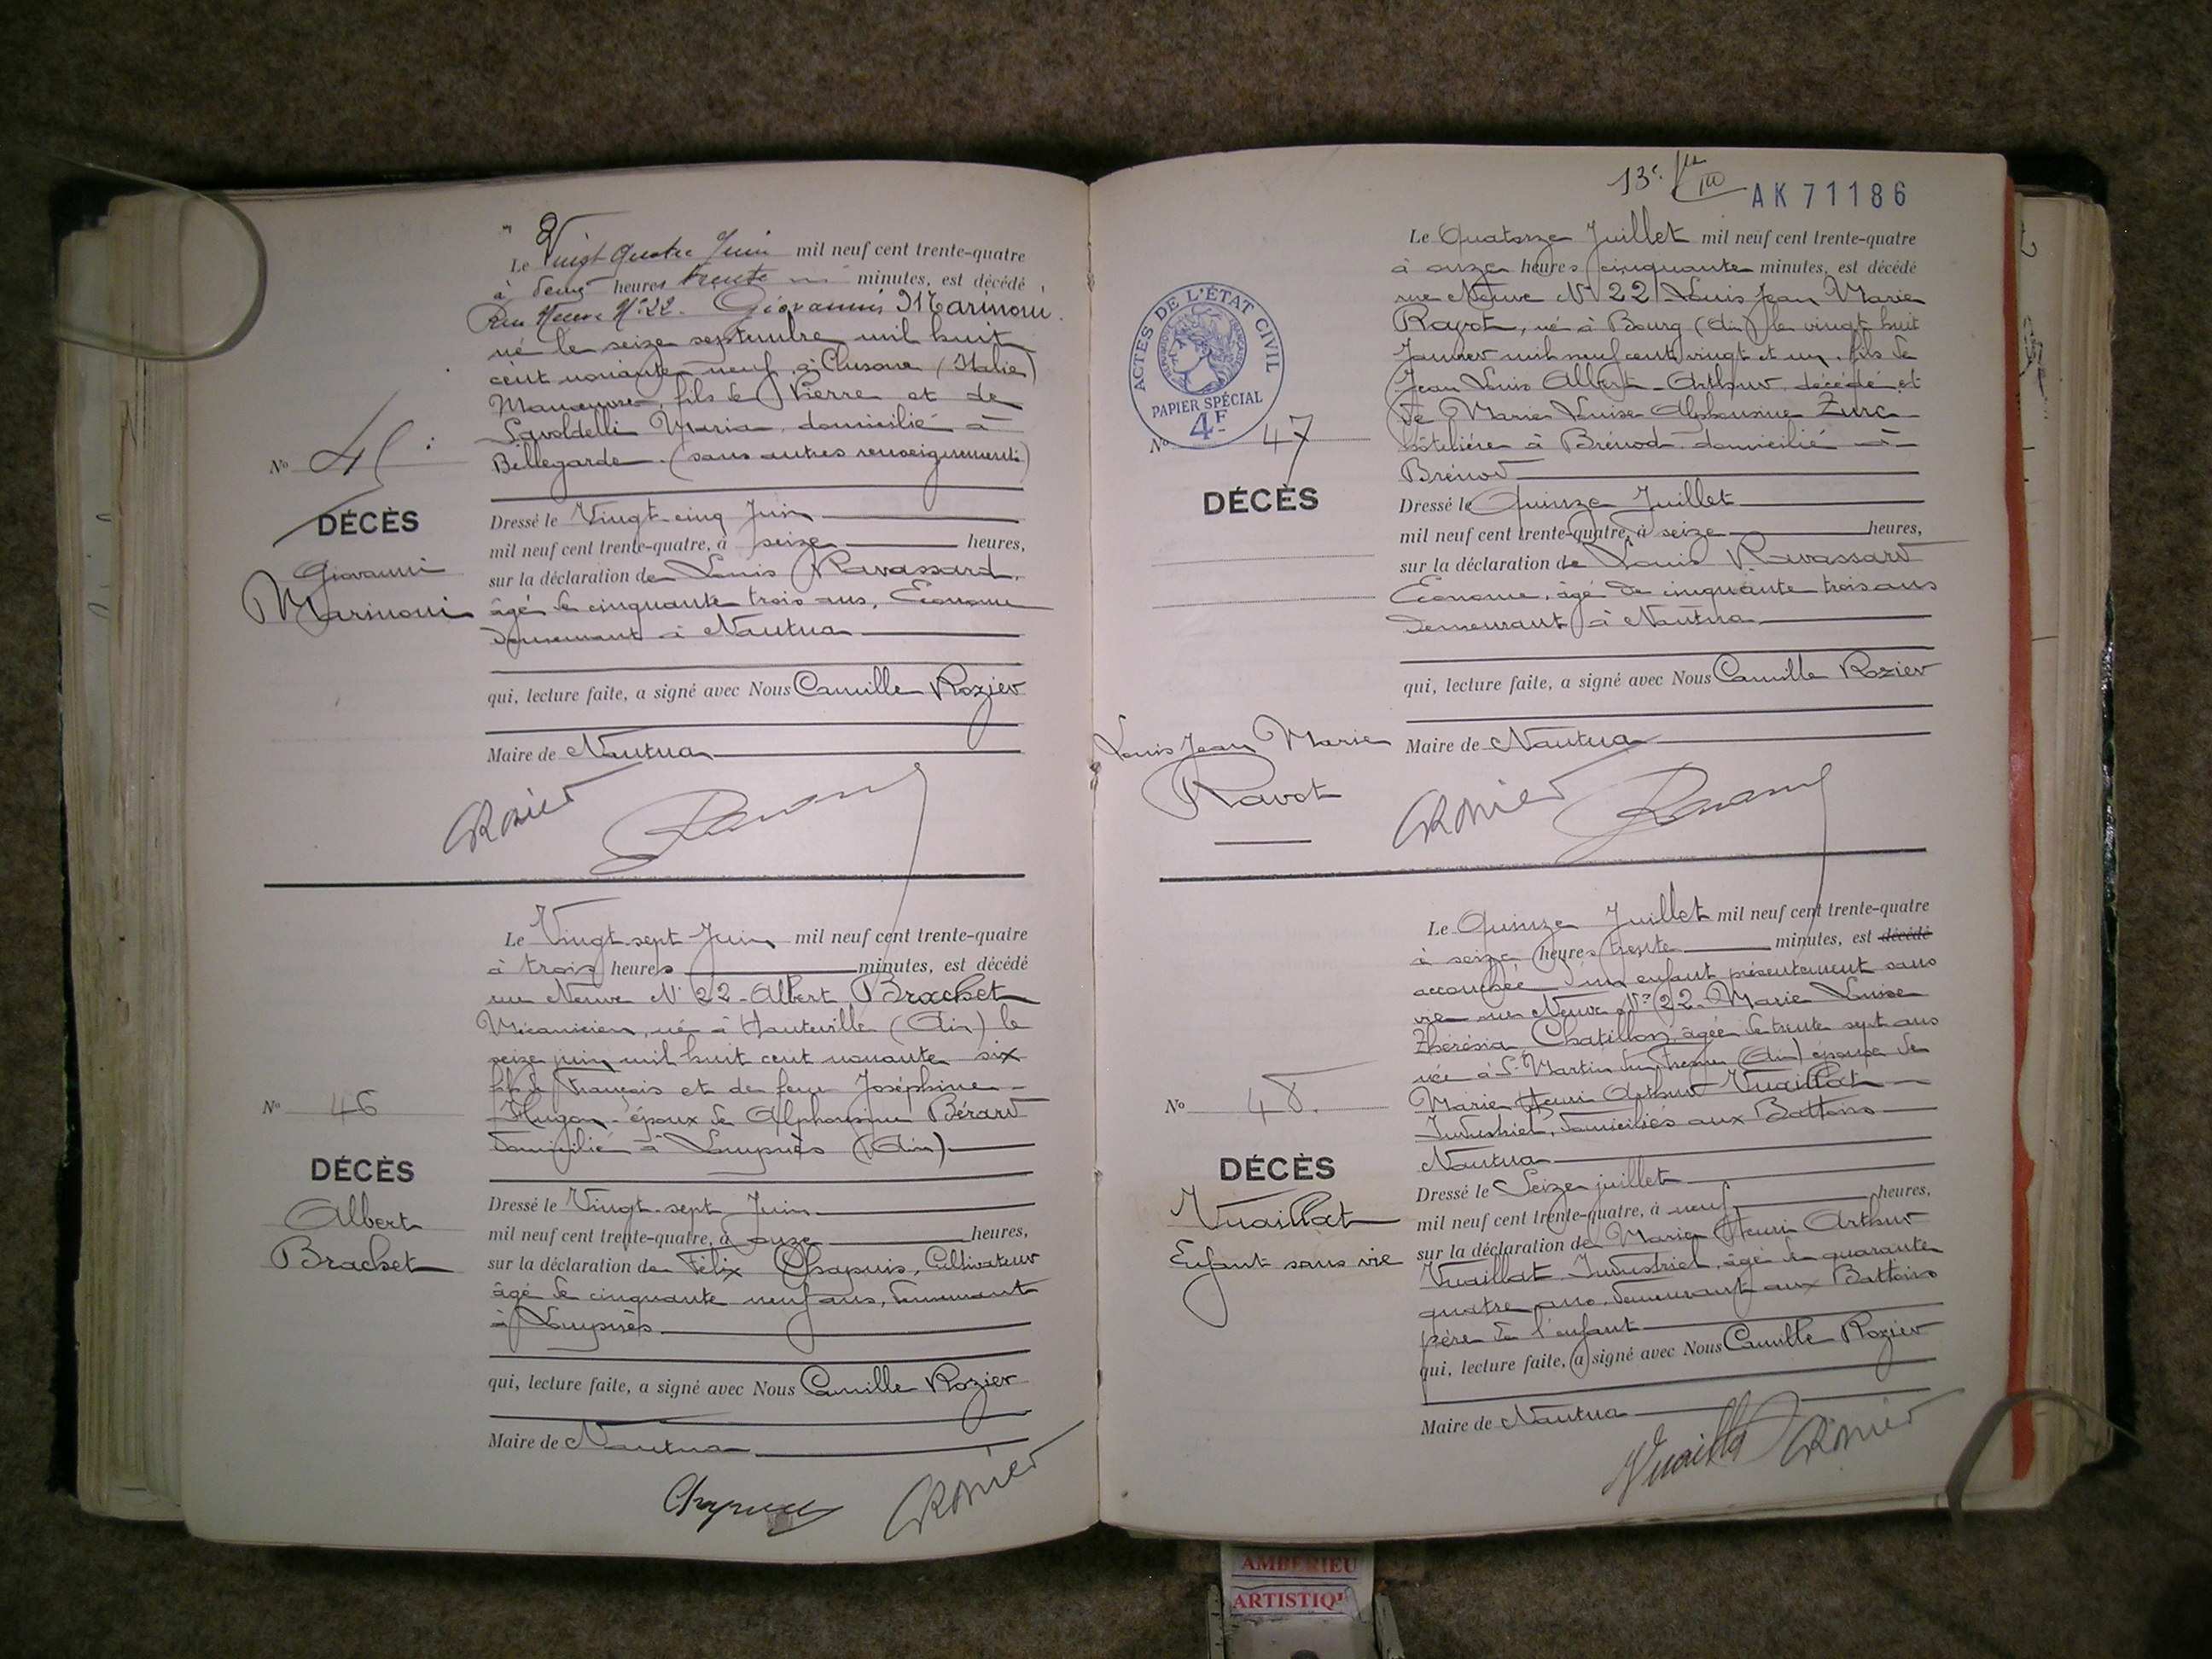 Le Vingt quatre Juin mil neuf cent trente-quatre
à deux heures trente minutes, est décédé
Rue Neuve N° 22. Giovanni Marinoni
né le seize septembre mil huit
cent nonante neuf à Clusone (Italie)
Manœuvre, fils de Pierre et de
Savoldelli Maria domicilié à
Bellegarde. (sans autres renseignements)
N° 45
DÉCÈS
Giovanni
Marinoni
Dressé le Vingt-cinq Juin
mil neuf cent trente-quatre, à seize heures,
sur la déclaration de Louis Ravassard,
âgé de cinquante trois ans, Econome
demeurant à Nantua
qui, lecture faite, a signé avec Nous Camille Rozier
Maire de Nantua
CRozier
Le Vingt-sept Juin mil neuf cent trente-quatre
à trois heures minutes, est décédé
rue Neuve N° 22 - Albert Brachet
Mécanicien, né à Hauteville (Ain) le
seize juin mil huit cent nonante six
fils de François et de feue Joséphine
Hugon - époux de Alphonsine Bérard
domicilié à Lompnès (Ain)
N° 46
DÉCÈS
Albert
Brachet
Dressé le Vingt-sept Juin
mil neuf cent trente-quatre, à onze heures,
sur la déclaration de Félix Chapuis, Cultivateur
âgé de cinquante neuf ans, demeurant
à Lompnès
qui, lecture faite, a signé avec Nous Camille Rozier
Maire de Nantua
Chapuis CRozier
13e
AK 71186
Le Quatorze Juillet mil neuf cent trente-quatre
à onze heures cinquante minutes, est décédé
rue Neuve N° 22 Louis Jean Marie
Ravot, né à Bourg (Ain) le vingt huit
Janvier mil neuf cent vingt et un, fils de
Jean Louis Albert-Arthur, décédé et
de Marie Louise Alphonsine Zurc
hôtelière à Brénod domicilié à
Brénod
ACTES DE L'ÉTAT CIVIL
PAPIER SPÉCIAL
4F
N° 47
DÉCÈS
Dressé le Quinze Juillet
mil neuf cent trente-quatre, à seize heures,
sur la déclaration de Louis Ravassard
Econome, âgé de cinquante trois ans
demeurant à Nantua
qui, lecture faite, a signé avec Nous Camille Rozier
Louis Jean Marie
Ravot
Maire de Nantua
CRozier
Le Quinze Juillet mil neuf cent trente-quatre
à seize heures trente minutes, est décédé
accouchée d'un enfant présentement sans
vie rue Neuve N° 22. Marie Louise
Thérésia Chatillon, âgée de trente sept ans
née à St Martin du Fresne (Ain) épouse de
Marie Henri Arthur Vuaillat
Industriel, domiciliés aux Battoirs
Nantua
N° 48.
DÉCÈS
Vuaillat
Enfant sans vie
Dressé le Seize juillet
mil neuf cent trente-quatre, à neuf heures,
sur la déclaration de Marie Henri Arthur
Vuaillat Industriel, âgé de quarante
quatre ans, demeurant aux Battoirs
père de l'enfant
qui, lecture faite, a signé avec Nous Camille Rozier
Maire de Nantua
Vuaillat CRozier
AMBERIEU
ARTISTIQ